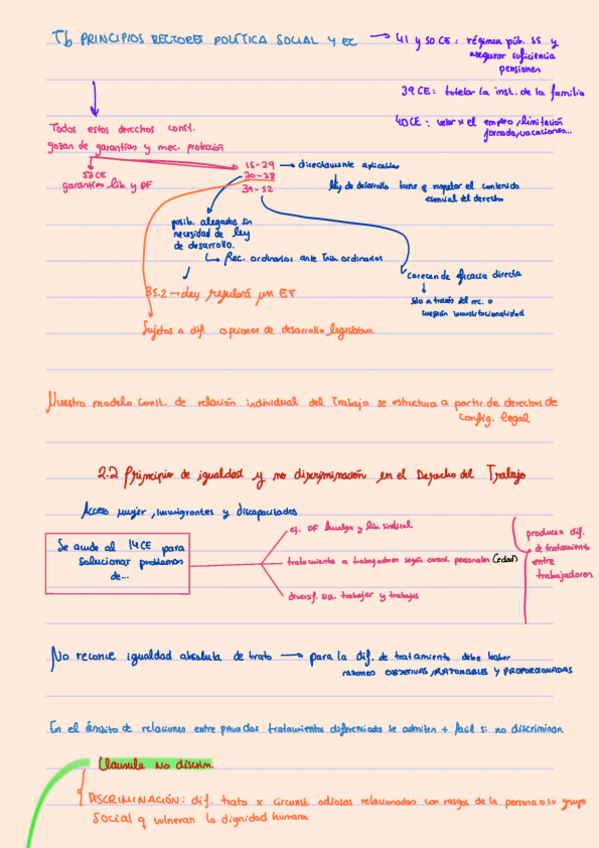 Tb PRINCIPIOS RECTORES POLÍTICA SOCIAL Y EC → 41 y 50 CE: régimen púb. SS y
asegurar suficiencia
pensiones
39 CE: tutelar la inst. de la familia
40 CE: velar x el empleo, limitación
jornada, vacaciones...
Todos estos derechos const.
gozan de garantías y mec. protección
53 CE
garantías lib. y DF
15-29 → directamente aplicables
30-38
39-52
ley de desarrollo tiene q respetar el contenido
esencial del derecho
posib. alegados sin
necesidad de ley
de desarrollo.
↳ Rec. ordinarios ante Trib. ordinarios
35.2 → ley regulará un ET
Carecen de eficacia directa
↓
Sólo a través del rec. o
cuestión inconstitucionalidad
Sujetos a dif. opciones de desarrollo legislativa
Nuestro modelo const. de relación individual del Trabajo se estructura a partir de derechos de
config. legal
2.2 Principio de igualdad y no discriminación en el Derecho del Trabajo
Acceso mujer, inmigrantes y discapacitados
Se acude al 14 CE para
solucionar problemas
de...
ej. DF huelga y lib. sindical
tratamiento a trabajadores según caract. personales (edad)
diversif. trabajar y trabajos
producen dif.
de tratamiento
entre
trabajadores
No reconoce igualdad absoluta de trato → para la dif. de tratamiento debe haber
razones OBJETIVAS, RAZONABLES Y PROPORCIONADAS
En el ámbito de relaciones entre privados tratamientos diferenciados se admiten + fácil si no discriminan.
Claúsula No discrim.
DISCRIMINACIÓN: dif. trato x circunst. odiosas relacionadas con rasgos de la persona o su grupo
social q vulneran la dignidad humana